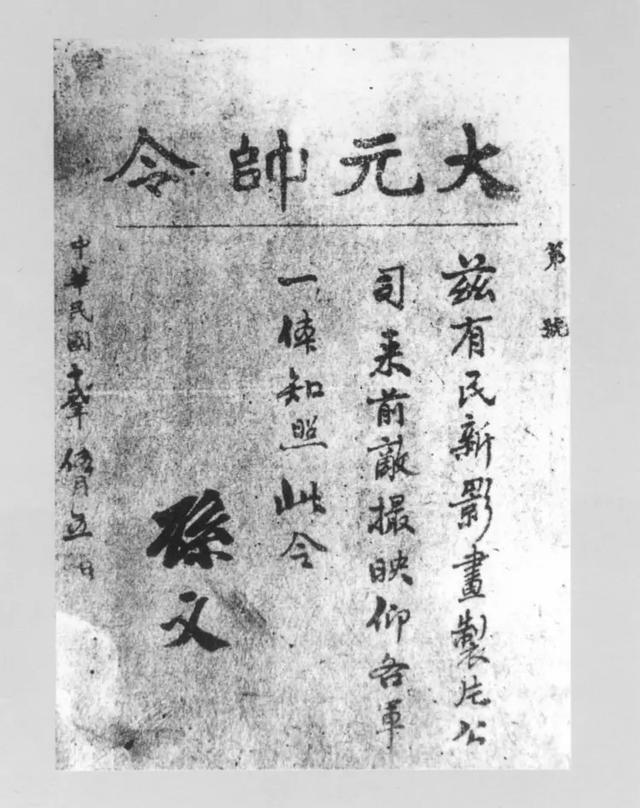 大元帥令
第 號
茲有民新影畫製片公
司来前敵撮映仰各軍
一体知照此令
孫文
中華民國十 年 月五日